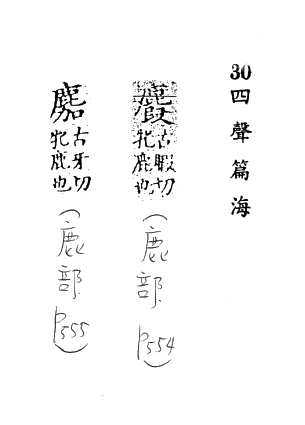 30四聲篇海
麚
古暇切
牝鹿也
(鹿部P554)
䴥
古牙切
牝鹿也
(鹿部P555)